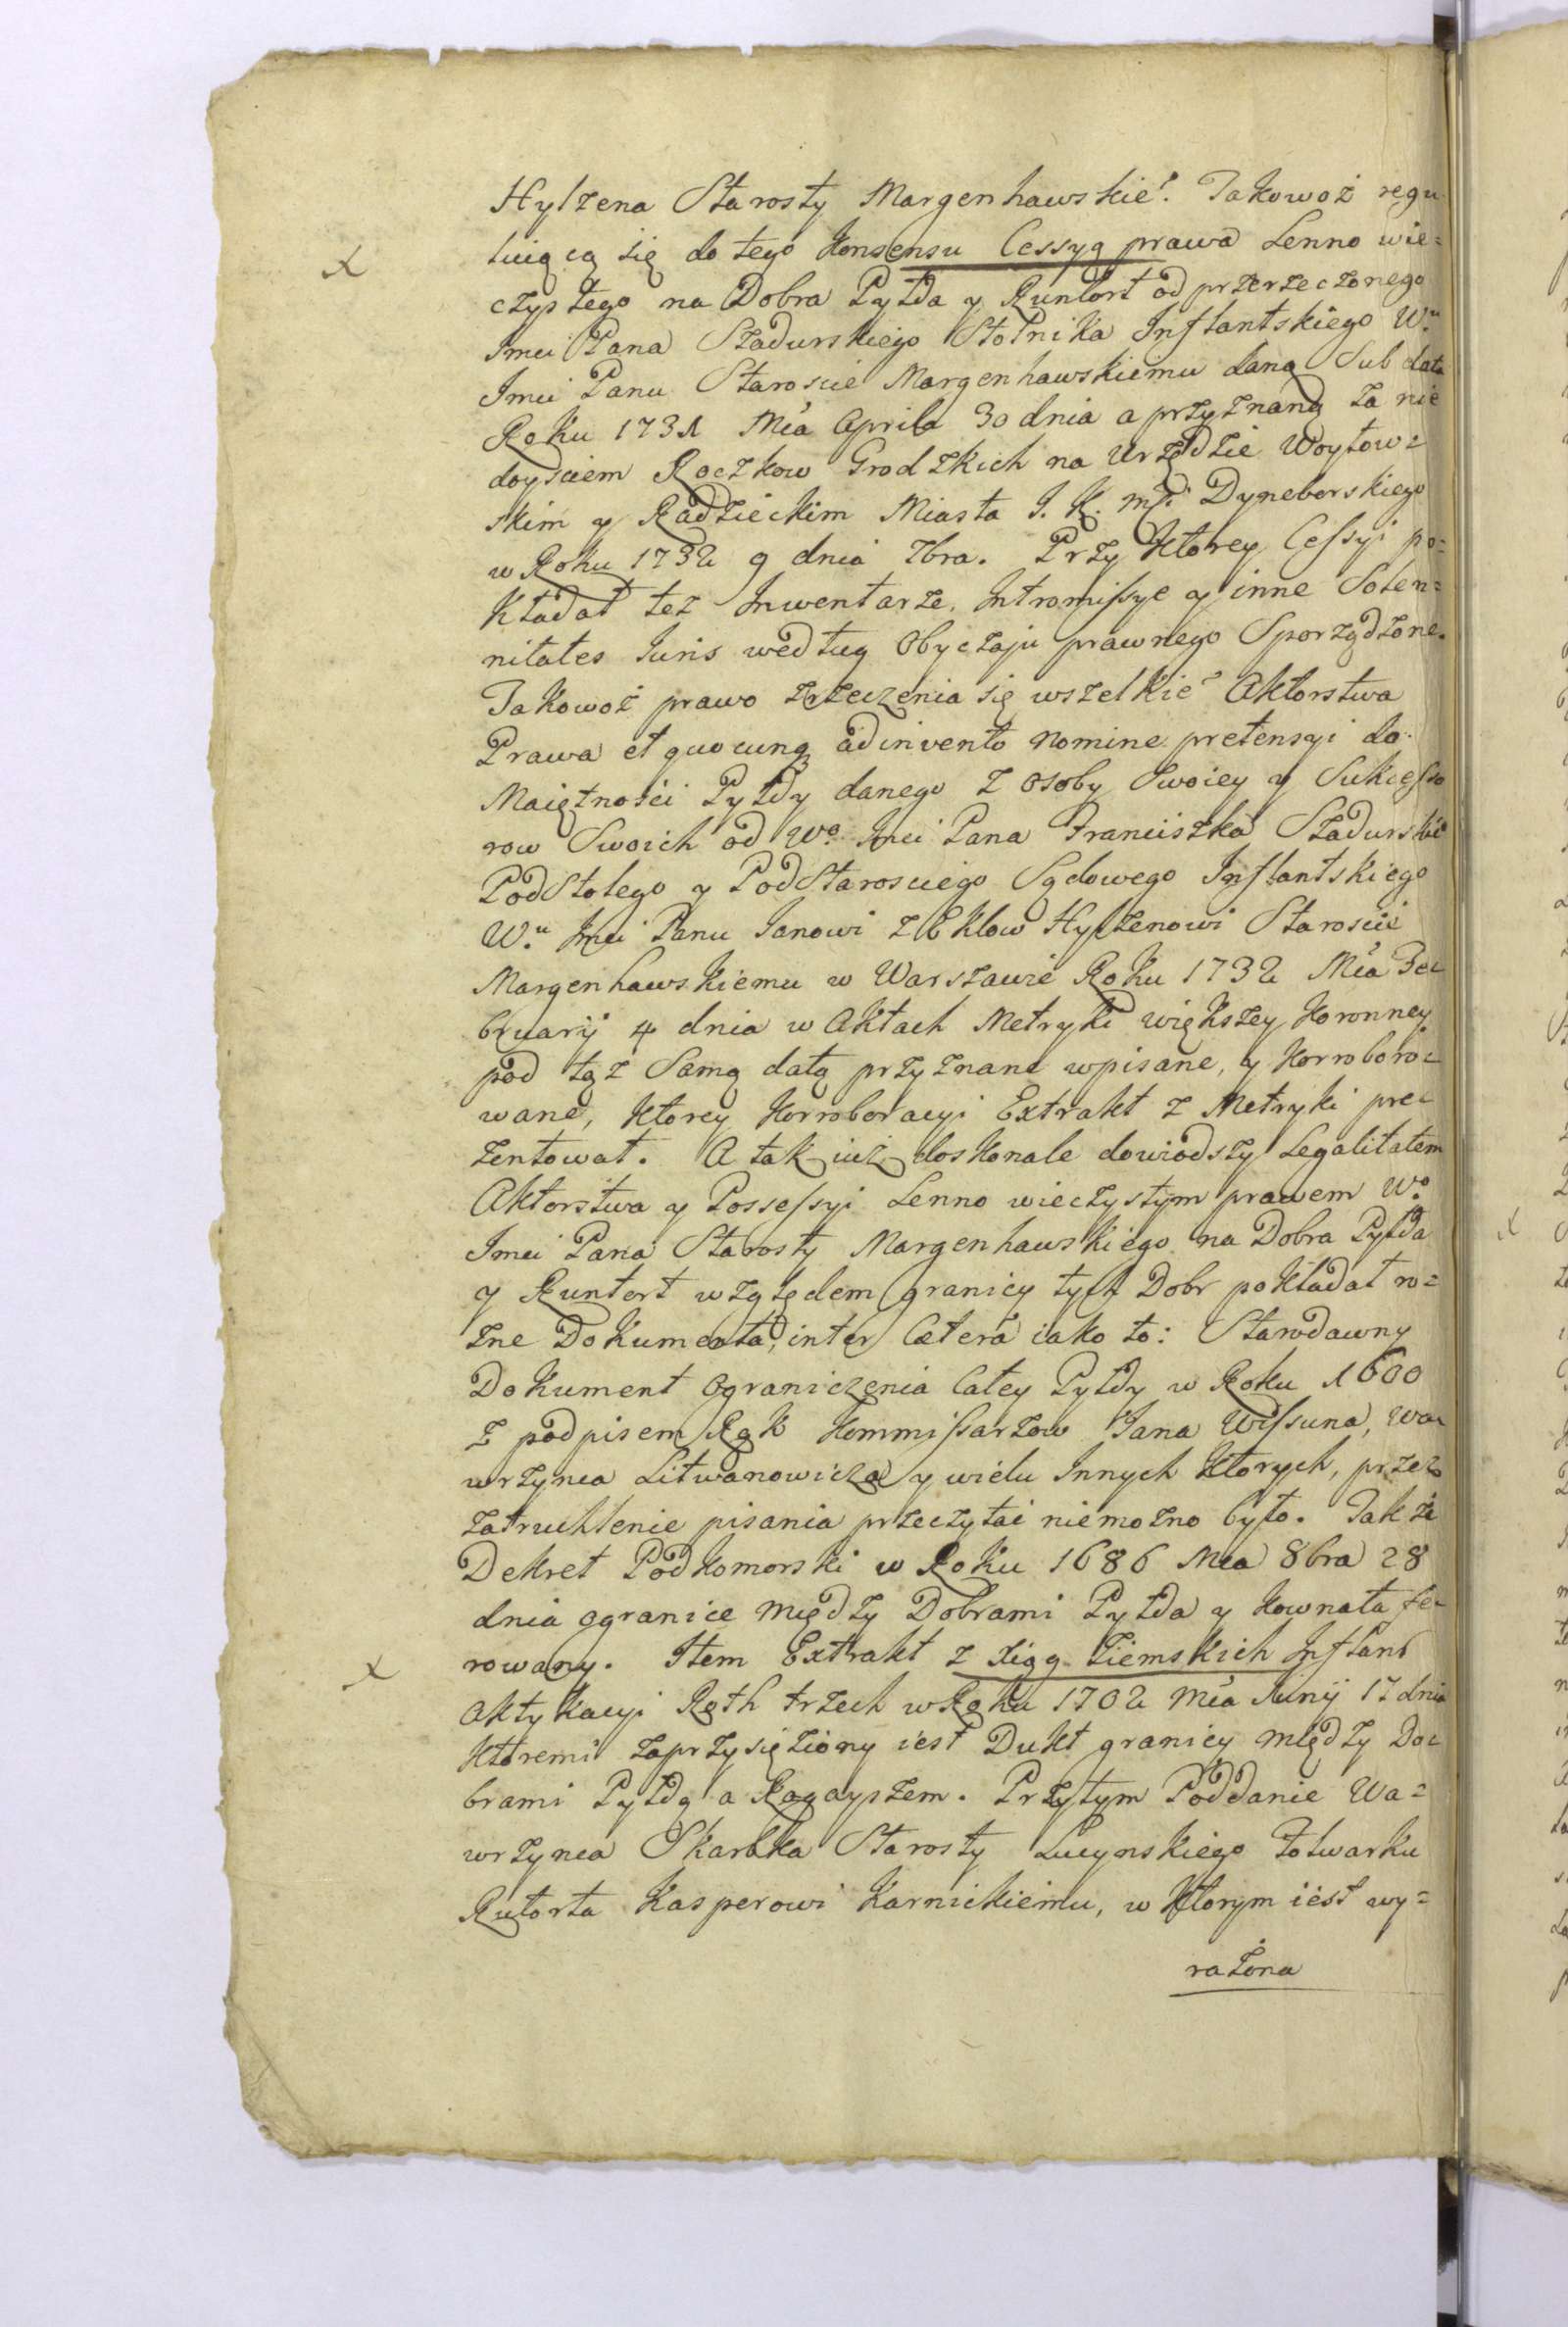 Hylzena Starosty Margenhawskie? Takowoż regu
luiącą się do tego Konsensu Cessyą prawa Lenno wie=
czystego na Dobra Pyłda y Runtort od przerzeczonego
Imci Pana Szadurskiego Stolnika Inflantskiego W.u
Imci Panu Staroscie Margenhawskiemu daną Sub data
Roku 1731 Mća Aprila 30 dnia a przyznaną za nie
doysciem Roczkow Grodzkich na Urzędzie Woytow=
skim y Radzieckim Miasta J. K. mći Dyneborskiego
w Roku 1732 9 dnia Zbra. Przy ktorey Cessyi po=
kładał tez Inwentarze, Intromissye y inne Solen=
nitates Iuris według Obyczaju prawnego Sporządzone.
Takowoż prawo zrzeczenia się wszelkie? Aktorstwa
Prawa et quocunq adinvento nomine pretensyi do
Maiętności Pyłdy danego z osoby Swoiey y Sukcesso
row Swoich od W.o Imci Pana Franciszka Szadurskie
PodStolego y PodStarosciego Sądowego Inflantskiego
W.u Imci Panu Janowi z Eklow Hylzenowi Staroscie
Margenhawskiemu w Warszawie Roku 1732 Mća Fe=
bruarij 4 dnia w Aktach Metryki większey Koronney
pod tąż Samą datą przyznane wpisane, y Korroboro=
wane, ktorey Korroboracyi Extrakt z Metryki pre=
zentował. A tak iuż doskonale dowiodszy Legalitatem
Aktorstwa y Possessyi Lenno wieczystym prawem W.o
Imci Pana Starosty Margenhawskiego na Dobra Pyłda
y Runtort względem granicy tych Dobr pokładał ro=
zne Dokumenta, inter Cætera iako to: Starodawny
Dokument Ograniczenia Całey Pyłdy w Roku 1600
z podpisem Rąk Kommissarzow Jana Wissuna, Wa=
wrzynca Litwanowicza y wielu Innych ktorych, przez
zatruchlenie pisania przeczytać niemożno było. Także
Dekret Podkomorski w Roku 1686 Mca 8bra 28
dnia ogranice między Dobrami Pyłda y Kownata fe=
rowany. Item Extrakt z xiąg Ziemskich Inflant
Aktykacyi Roth trzech w Roku 1702 Mća Junij 17 dnia
ktoremi zaprzysiężony iest Dukt granicy między Do=
brami Pyłdą a Ragayszem. Przytym Poddanie Wa=
wrzynca Skarbka Starosty Lucynskiego Folwarku
Rutorta Kasperowi Karnickiemu, w ktorym iest wy=
rażona